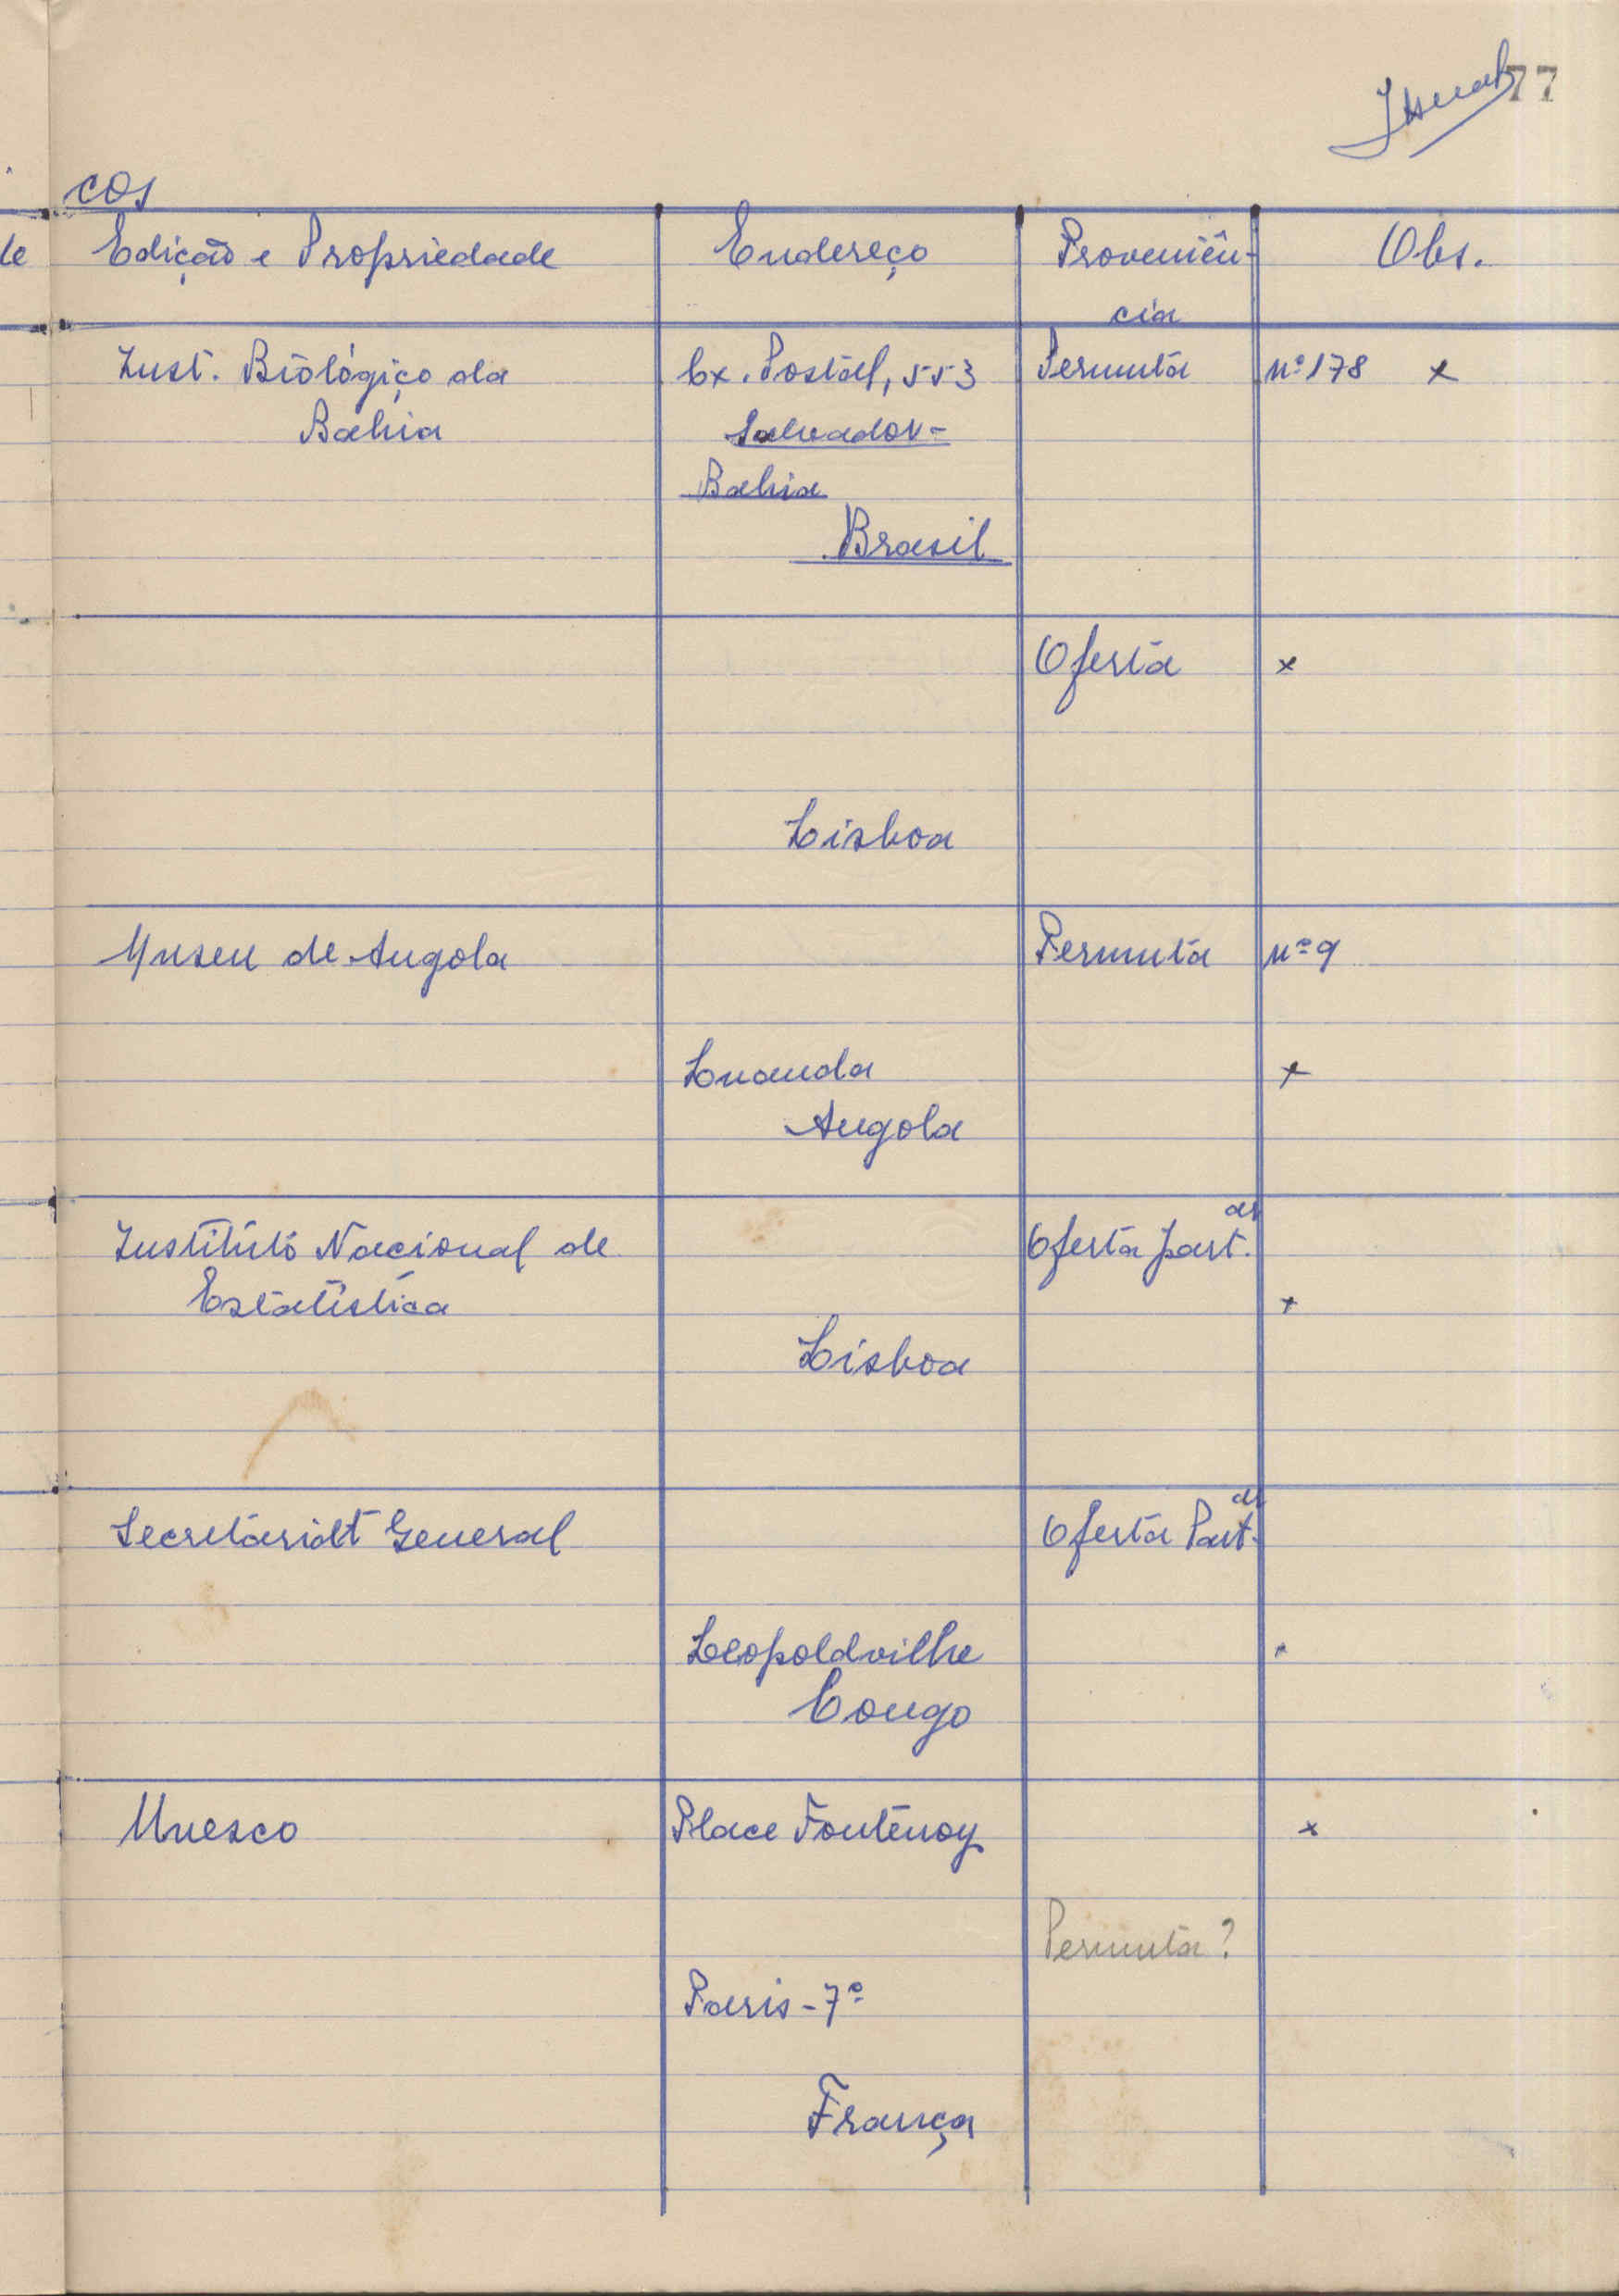 77
cos
de Edição e Propriedade Endereço Proveniên- Obs.
cia
Inst. Biológico da Cx. Postal, 553 Permuta nº 178 x
Bahia Salvador-
Bahia
Brasil
Oferta x
Lisboa
Museu de Angola Permuta nº 9
Luanda x
Angola
Instituto Nacional de Oferta part.
Estatística x
Lisboa
Secretariat General Oferta Part.
Leopoldvilhe
Congo
Unesco Place Fontenoy x
Permuta?
Paris-7º
França